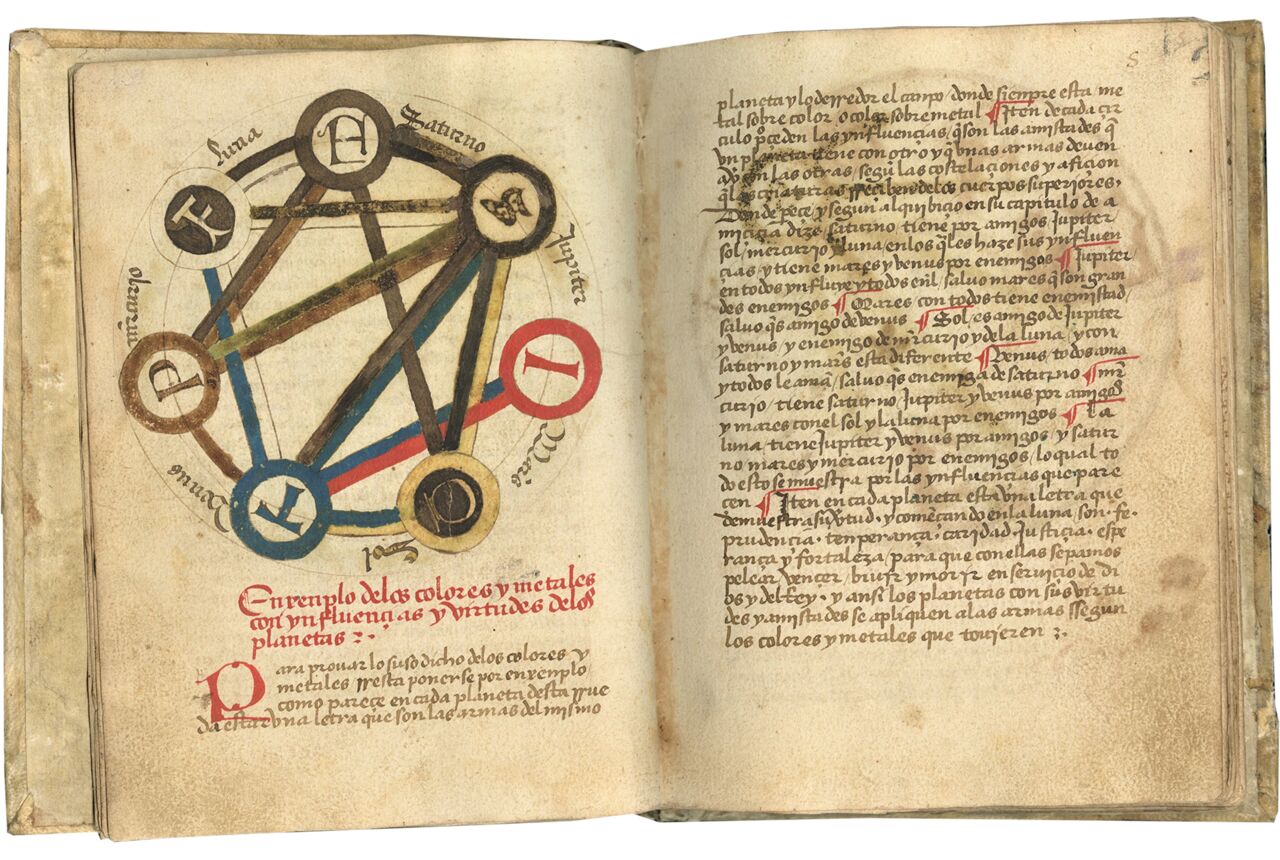 Luna
Saturno
Jupiter
mercurio
Mars
Venus
Sol
F
P
T
I
Enxenplo delos colores y metales
con ynfluençias y virtudes delos
planetas
Para provar lo suso dicho delos colores y
metales rresta ponerse por enxenplo
como pareçe en cada planeta desta rrue
da estar vna letra que son las armas del mismo
planeta y lo derredor el canpo donde sienpre esta me
tal sobre color o color sobre metal Iten de cada çir
culo proçeden las ynfluencias / q̃ son las amistades q̃
vn planeta tiene con otro y q̃ vnas armas deven
con las otras / segũ las costelaçiones y afiçion
q̃ las criaturas rreçiben delos cuerpos superiores.
Donde pece y segun alquibiçio en su capitulo de a
miçiçia dize / saturno / tiene por amigos / Jupiter
sol / mercurio y luna / en los q̃les haze sus ynfluen
cias / y tiene mares y venus por enemigos Jupiter
en todos ynfluye y todos enl / salvo mares q̃ son gran
des enemigos Mares con todos tiene enemistad /
salvo q̃s amigo de venus Sol / es amigo de Jupiter
y venus / y enemigo de mrcurio y de la luna / y con
saturno y mars esta diferente Venus / todos ama
y todos le amã / salvo q̃s enemiga de saturno mr̃
curio / tiene saturno Jupiter y venus por amigos
y mares con el sol y la luna por enemigos La
luna tiene Jupiter y venus por amigos / y satur
no mares y mercurio por enemigos / lo qual to
do esto se muestra por las ynfluencias que pare
cen Iten en cada planeta esta vna letra que
demuestra su vtud · y començando en la luna / son · fe ·
prudencia · tenperança · caridad · Justiçia · espe
rança y fortaleza / para que con ellas sepamos
pelear / vençer / biuir y morir en serviçio de di
os y del Rey · y ansi los planetas con sus virtu
des y amistades se apliquen alas armas ssegun
los colores y metales que touieren